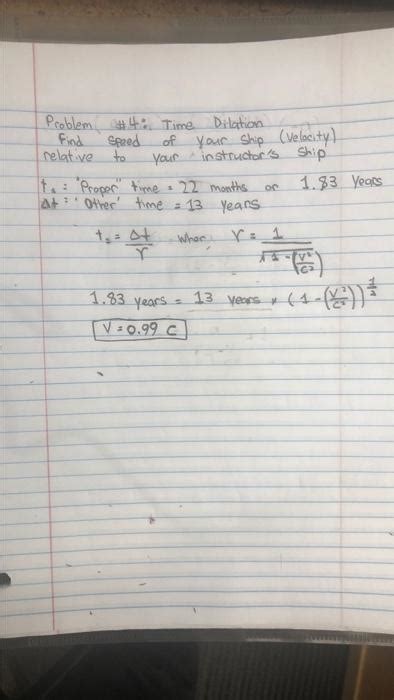 Problem #4: Time Dilation
Find speed of your ship (velocity)
relative to your instructor's ship
t₀ : "Proper" time = 22 months or 1.83 years
Δt : 'Other' time = 13 years
t₀ = Δt/γ wher γ = 1/√(1 - (v²/c²))
1.83 years = 13 years × (1 - (v²/c²))^(1/2)
V = 0.99 c